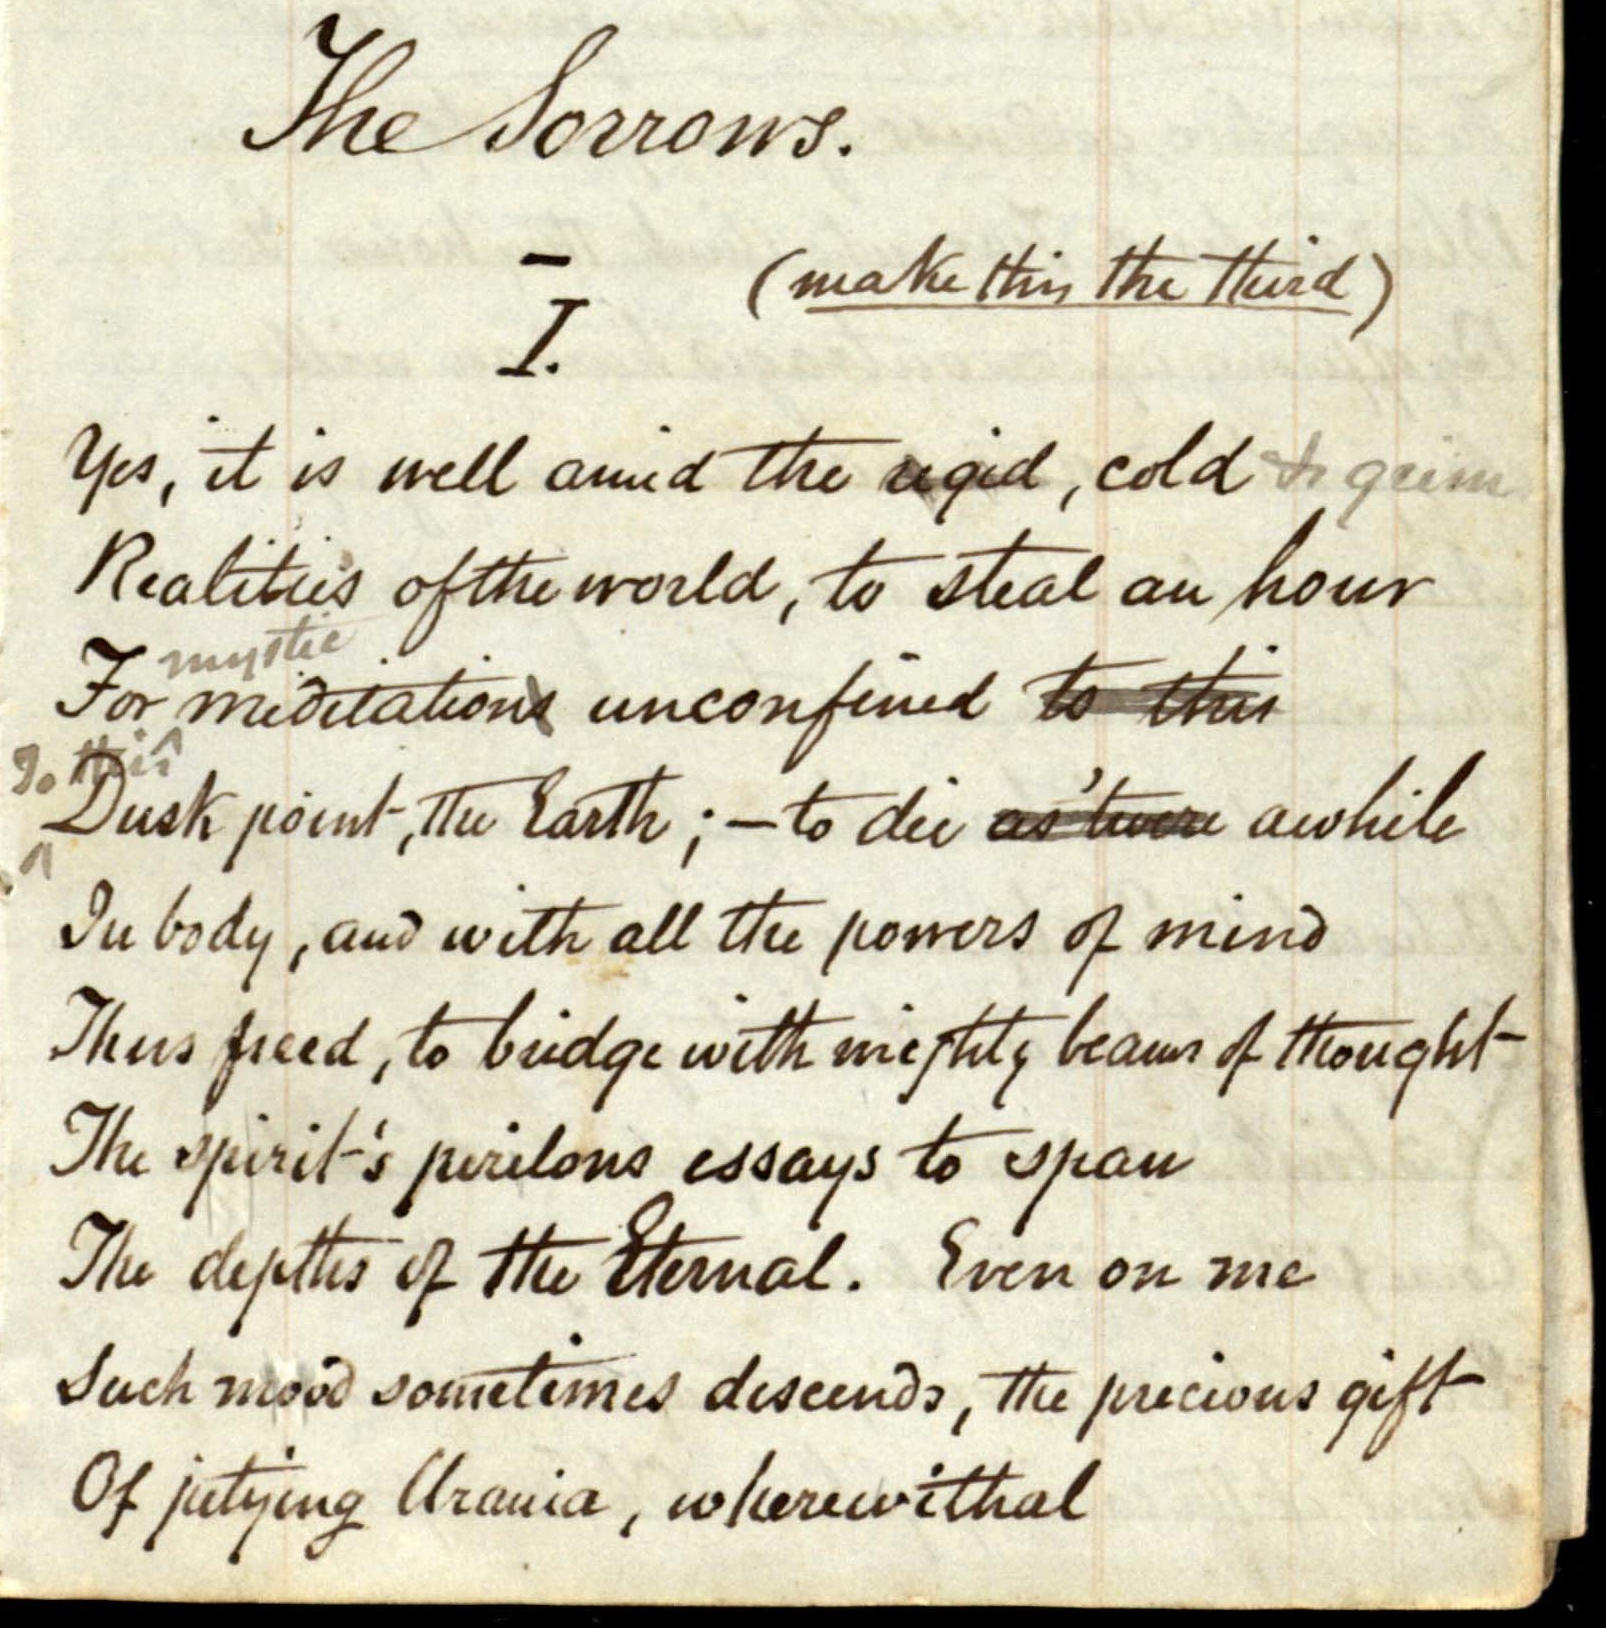 The Sorrows.
I.
(make this the third)
Yes, it is well amid the rigid, cold & grim
Realities of the world, to steal an hour
mystic
For meditation unconfined to this
To this
Dusk point, the Earth; — to die as 'twere awhile
In body, and with all the powers of mind
Thus freed, to bridge with mighty beams of thought
The spirit's perilous essays to span
The depths of the Eternal. Even on me
Such mood sometimes descends, the precious gift
Of pitying Urania, wherewithal